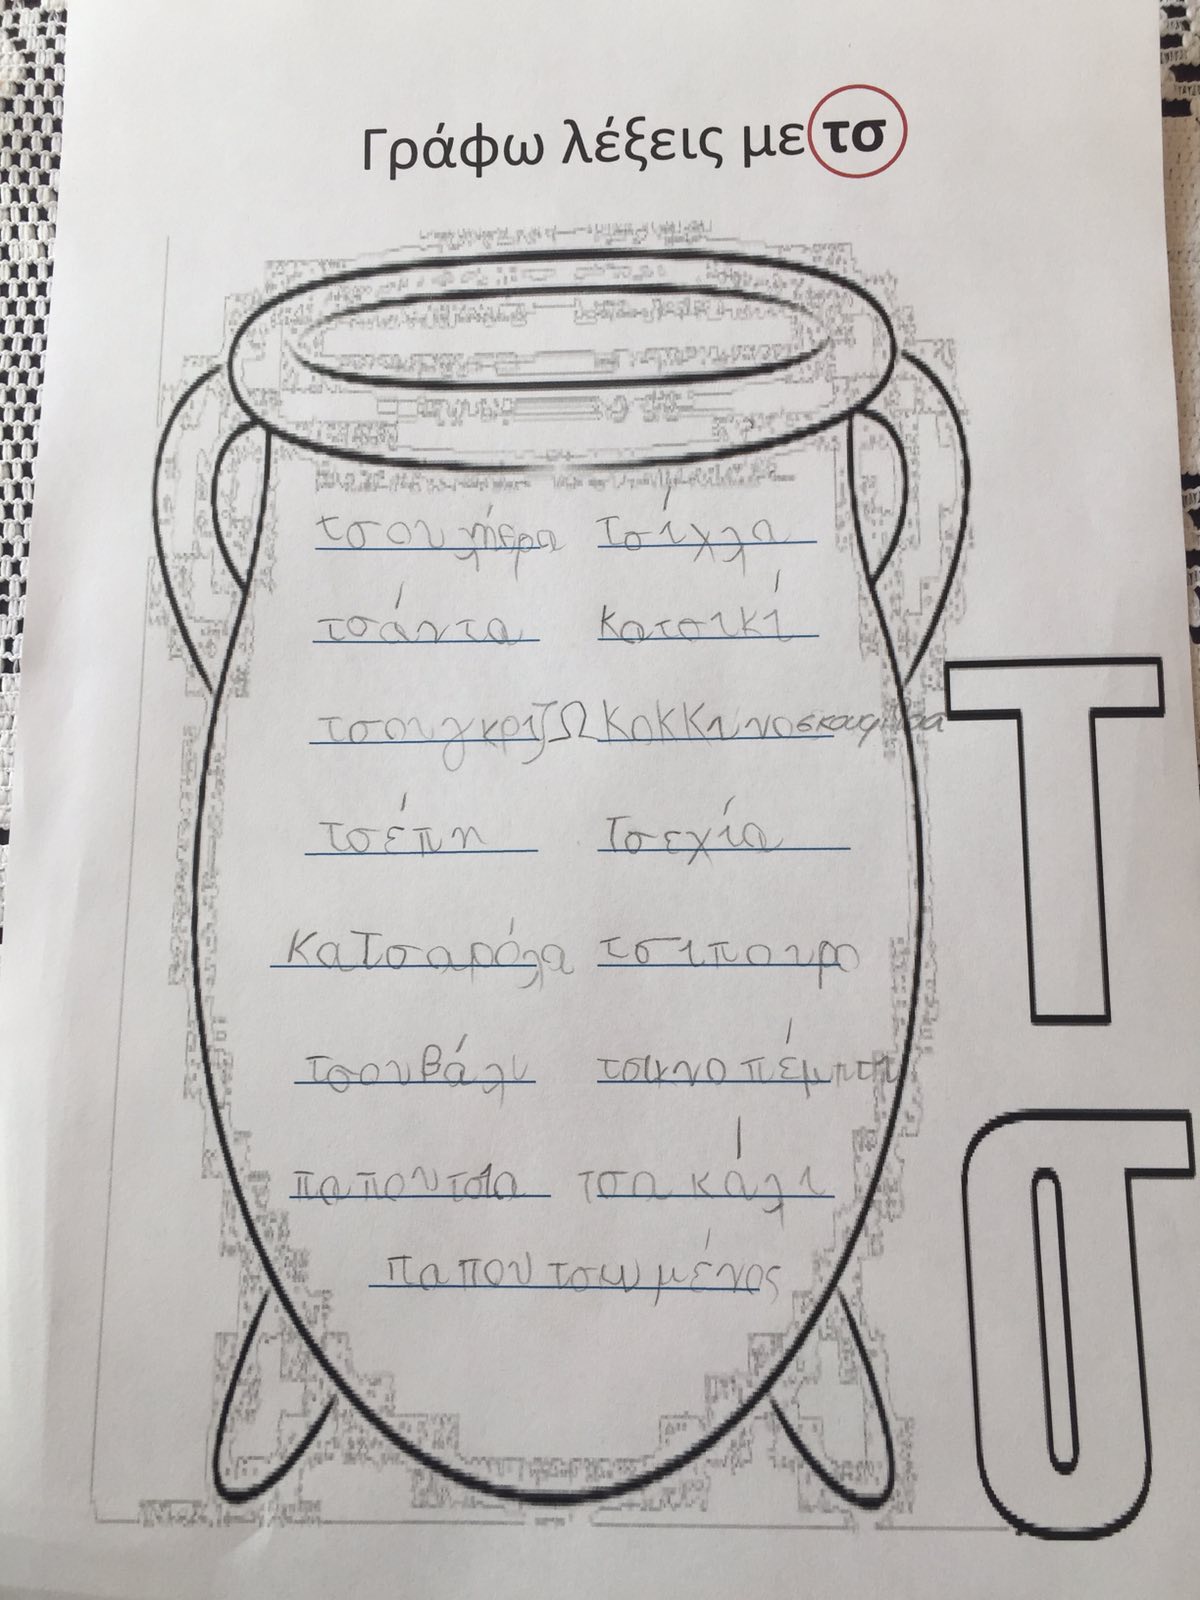 Γράφω λέξεις με τσ
τσουλήθρα τσίχλα
τσάντα κατσικί
τσουγκριζΩ ΚοΚΚινοσκουφίτσα
τσέπη Τσεχία
κατσαρόλα τσιπουρο
τσουβάλι τσικνοπέμπτη
παπουτσια τσακάλι
παπουτσωμένος
Τ
σ